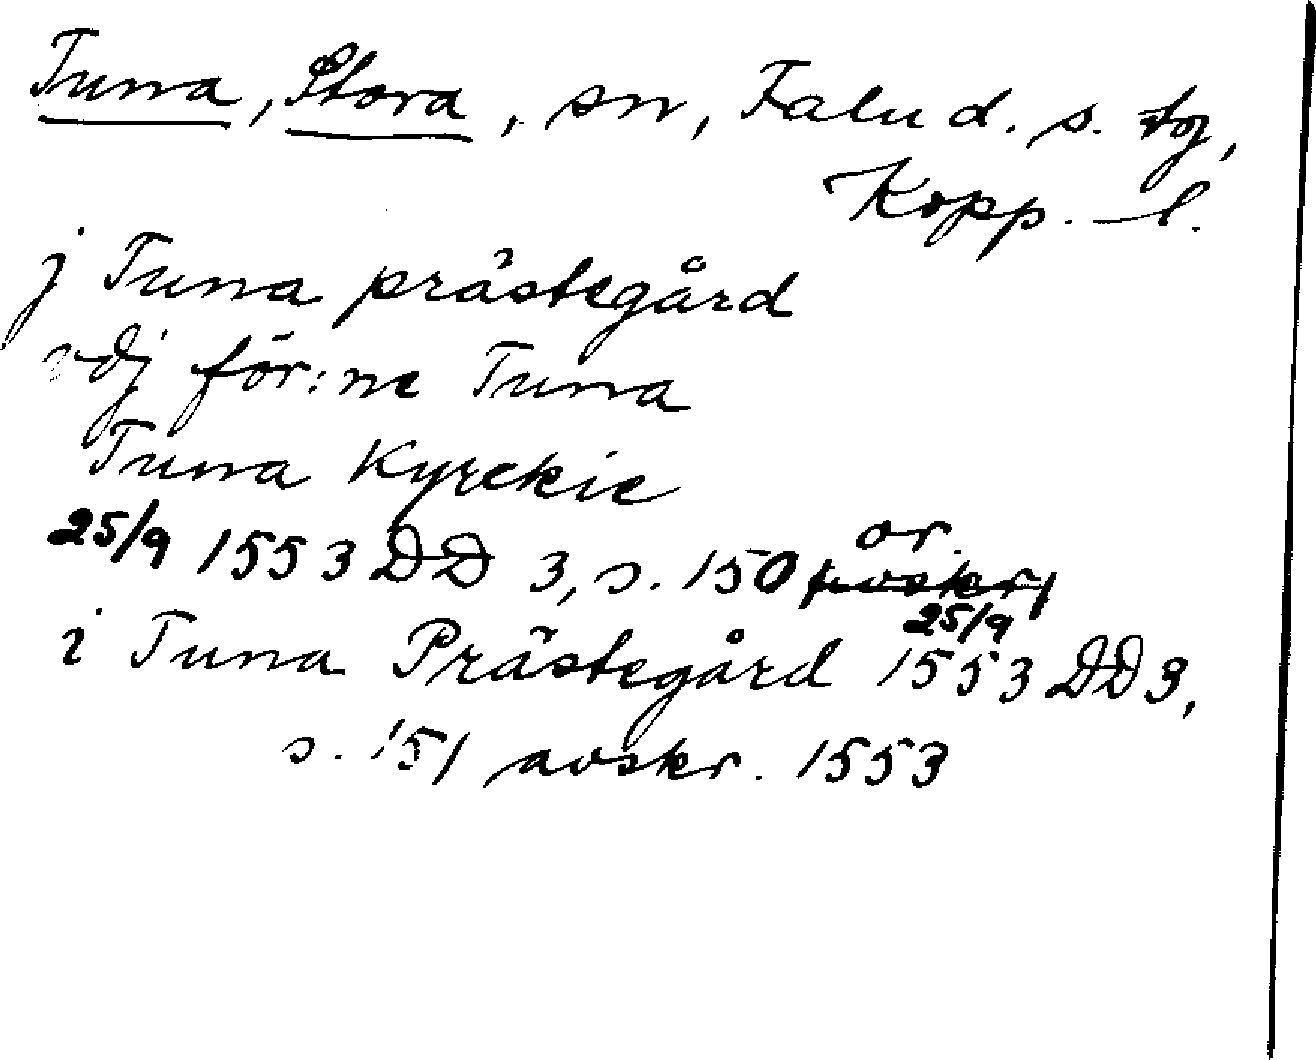 Tuna, Stora, sn, Falu d. s. tg,
Kopp. l.
j Tuna prästegård
vdj för:ne Tuna
Tuna Kyrckie
25/9 1553 DD 3, s. 150 or.
i Tuna Prästegård 25/9 1553 DD 3,
s. 151 avskr. 1553